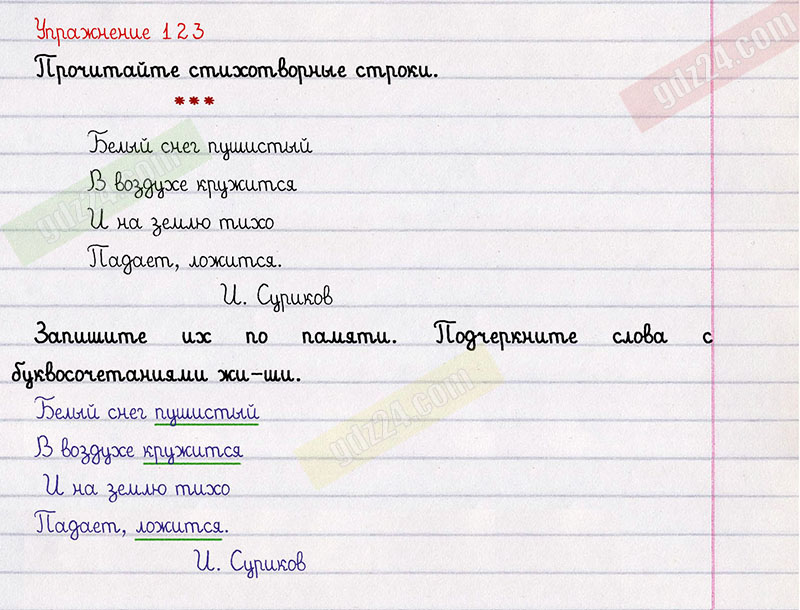 Упражнение 123
Прочитайте стихотворные строки.
***
Белый снег пушистый
В воздухе кружится
И на землю тихо
Падает, ложится.
И. Суриков
Запишите их по памяти. Подчеркните слова с
буквосочетаниями жи-ши.
Белый снег пушистый
В воздухе кружится
И на землю тихо
Падает, ложится.
И. Суриков
gdz24.com
gdz24.com
gdz24.com